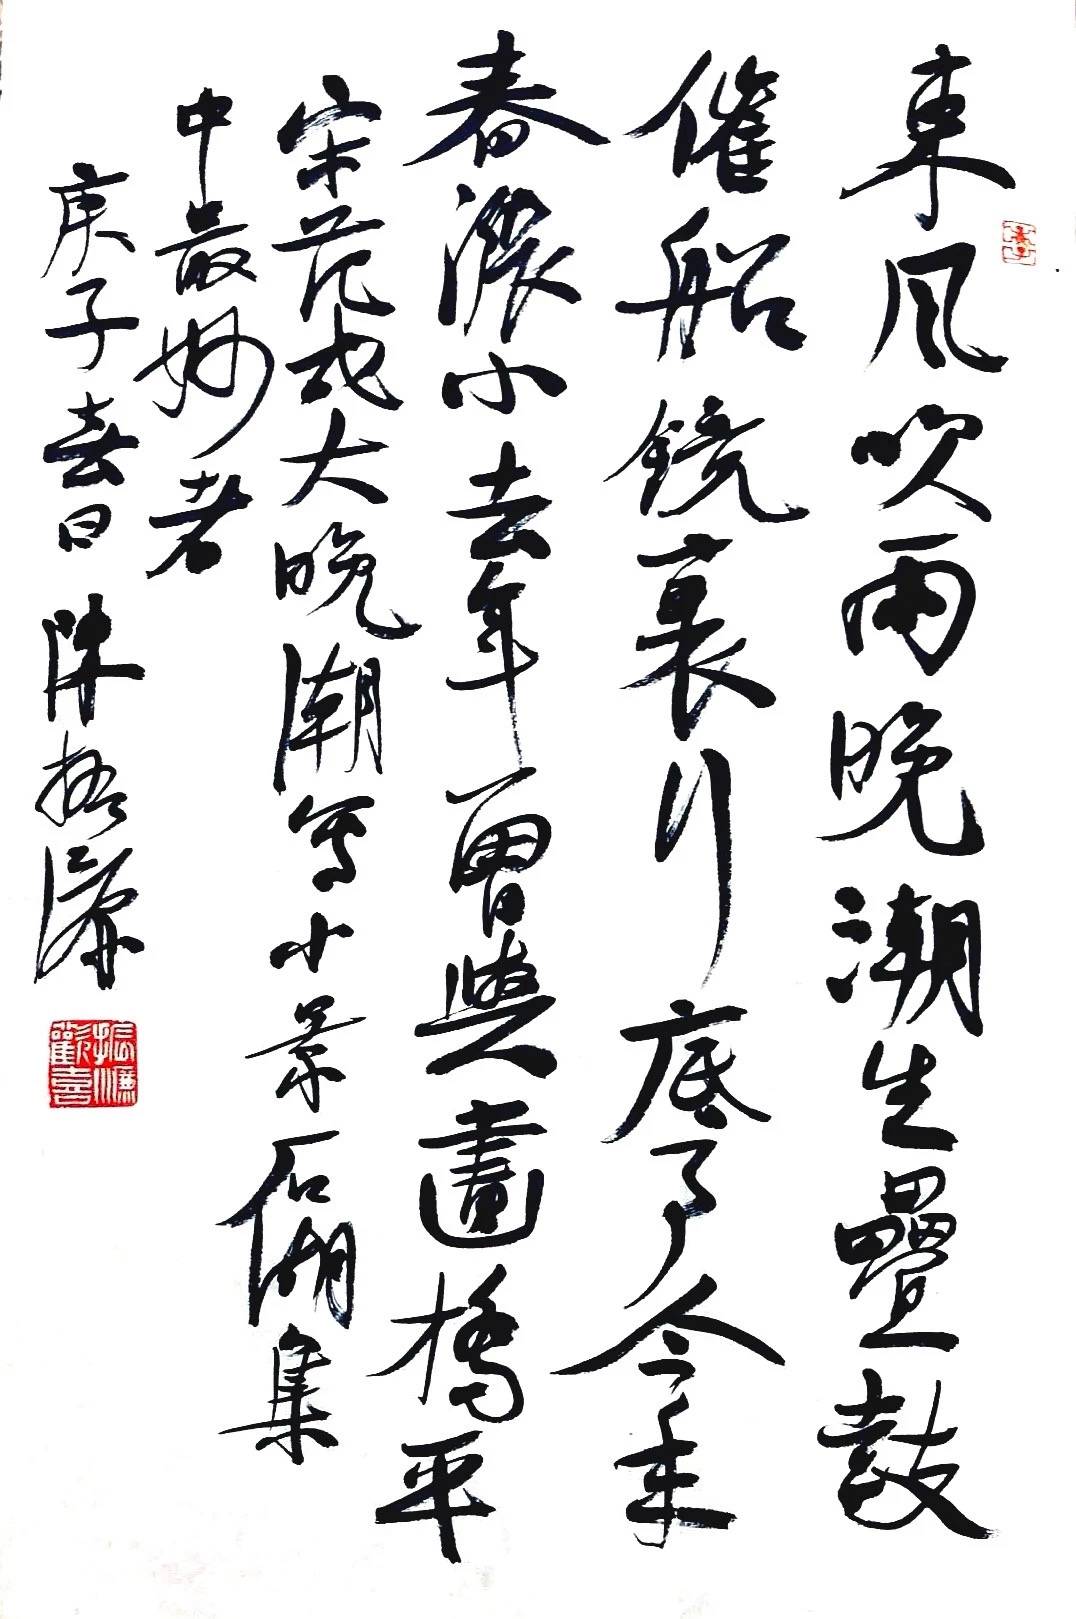 東風吹雨晚潮生疊鼓
催船鏡裏行底事今年
春漲小去年曾與畫橋平
宋范成大晚潮寫小景石湖集
中最妙者
庚子日 陳振濂
振濂歡喜